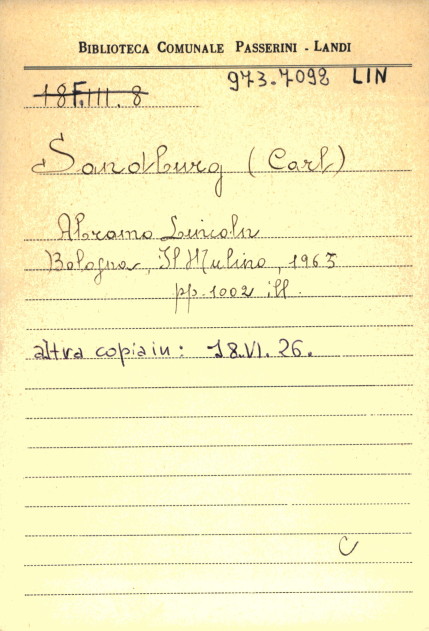 BIBLIOTECA COMUNALE PASSERINI - LANDI
973.7092 LIN
18F.III. 8
Sandburg (Carl)
Abramo Lincoln
Bologna, Il Mulino, 1965
pp. 1002 ill.
altra copia in: 18.VI. 26.
C